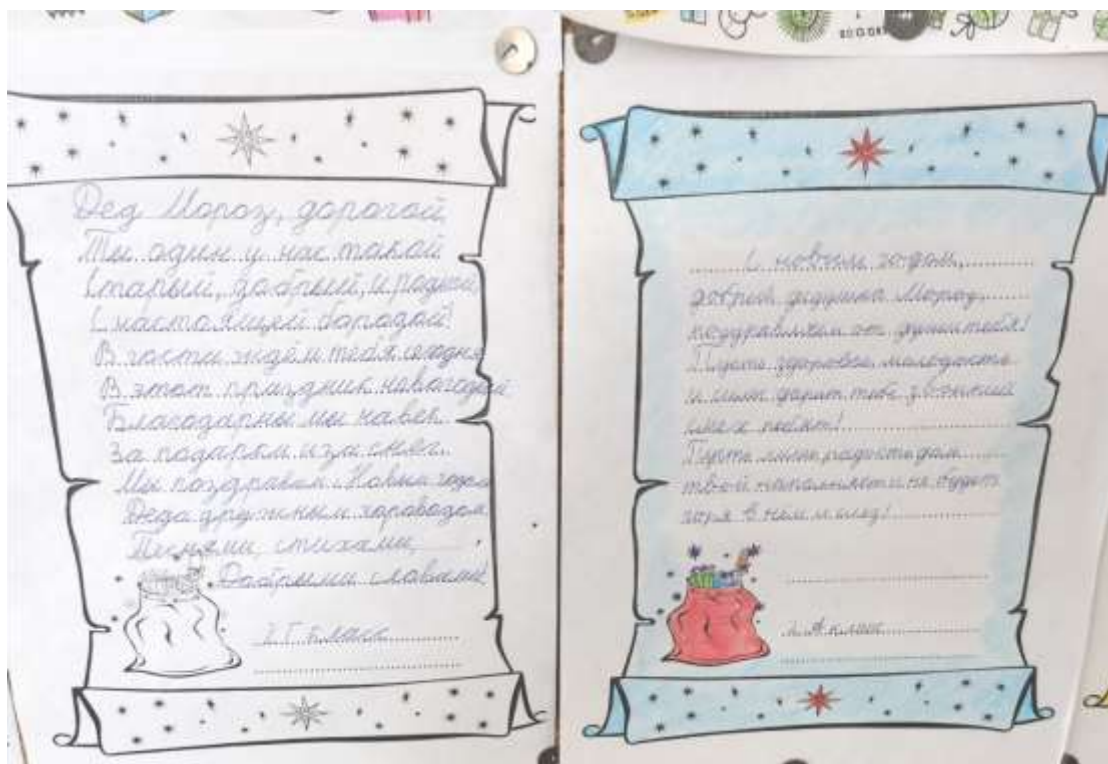 Дед Мороз, дорогой,
Ты один у нас такой
Старый, добрый, и родной
С настоящей бородой!
В гости ждём тебя сегодня
В этот праздник новогодний
Благодарны мы навек
За подарки и за снег.
Мы поздравим с Новым годом
Деда дружным хороводом
Песнями, стихами,
Добрыми словами
2 Г класс
С новым годом,
добрый дедушка Мороз,
поздравляем от души тебя!
Пусть здоровье, молодость
и силы дарит тебе звонкий
смех ребят!
Пусть лишь радость дом
твой наполняет и не будет
горя в нем и слёз!
2 А класс